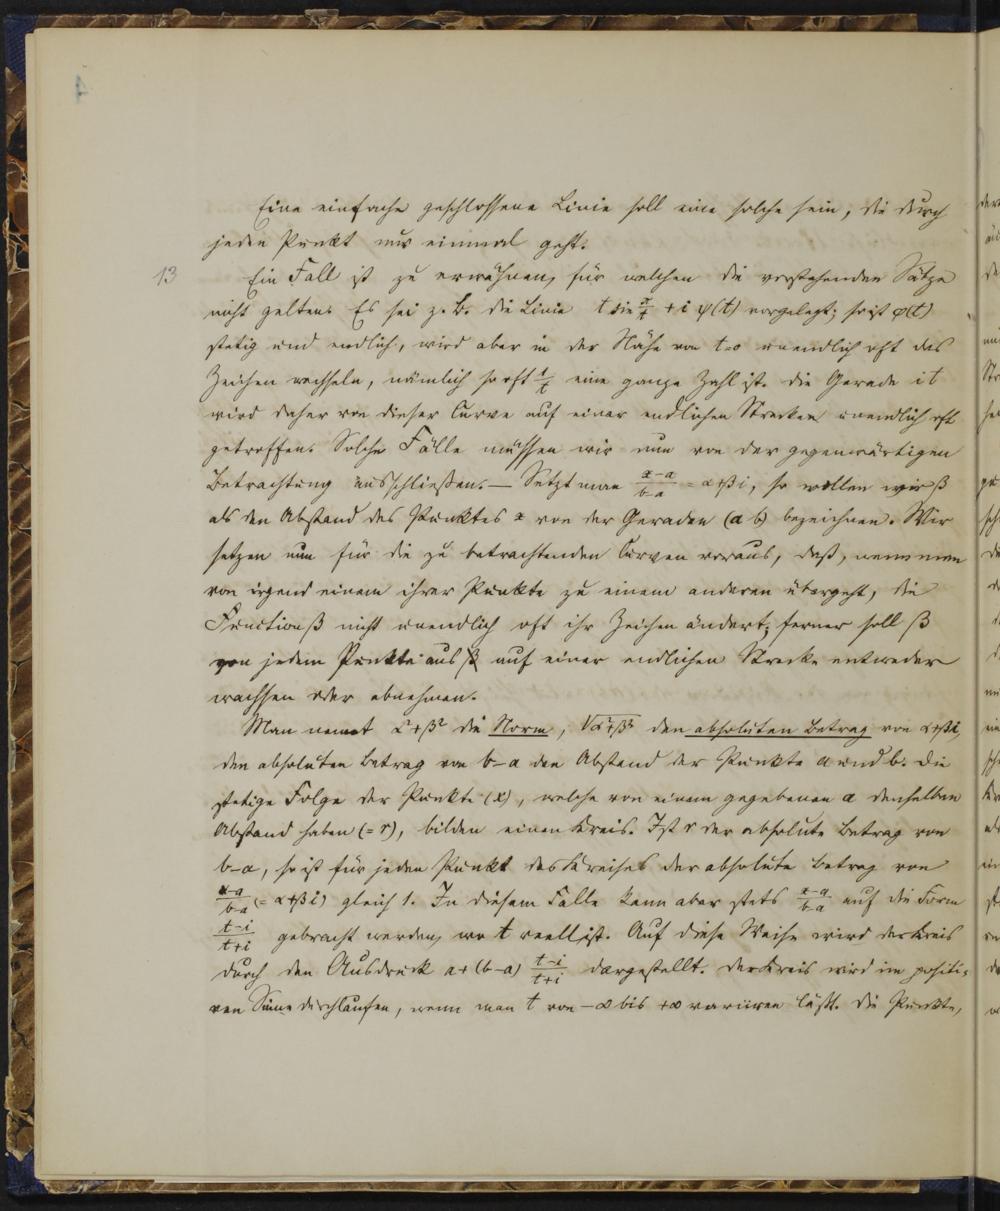 4
Eine einfache geschlossene Linie soll eine solche sein, die durch
jeden Punkt nur einmal geht.
13 Ein Fall ist zu erwähnen, für welchen die vorstehenden Sätze
nicht gelten. Es sei z. B. die Linie t sin π/t + i φ(t) vorgelegt; so ist φ(t)
stetig und endlich, wird aber in der Nähe von t=0 unendlich oft das
Zeichen wechseln, nämlich so oft 1/t eine ganze Zahl ist. Die Gerade it
wird daher von dieser Curve auf einer endlichen Strecken unendlich oft
getroffen. Solche Fälle müssen wir nun von der gegenwärtigen
Betrachtung ausschließen. — Setzt man (x-a)/(b-a) = α+βi, so wollen wir β
als den Abstand des Punktes x von der Geraden (a b) bezeichnen. Wir
setzen nun für die zu betrachtenden Curven voraus, daß, wenn man
von irgend einem ihrer Punkte zu einem anderen übergeht, die
Function β nicht unendlich oft ihr Zeichen ändert; ferner soll β
von jedem Punkte aus auf einer endlichen Strecke entweder
wachsen oder abnehmen.
Man nennt α²+β² die Norm, √α²+β² den absoluten Betrag von α+βi,
den absoluten Betrag von b-a den Abstand der Punkte a und b. Die
stetige Folge der Punkte (x), welche von einem gegebenen a denselben
Abstand haben (= r), bilden einen Kreis. Ist r der absolute Betrag von
b-a, so ist für jeden Punkt des Kreises der absolute Betrag von
(x-a)/(b-a) (= α+βi) gleich 1. In diesem Falle kann aber stets (x-a)/(b-a) auf die Form
(t-i)/(t+i) gebracht werden, wo t reell ist. Auf diese Weise wird der Kreis
durch den Ausdruck a+(b-a) (t-i)/(t+i) dargestellt. Der Kreis wird im positi-
ven Sinne durchlaufen, wenn man t von -∞ bis +∞ variiren läßt. Die Punkte,